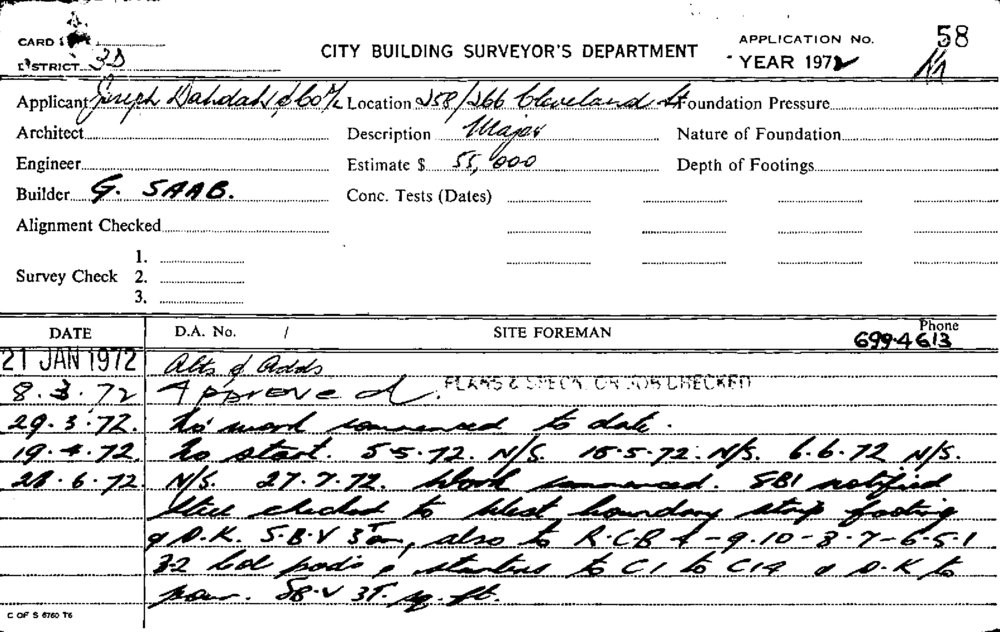 CARD 1
DISTRICT 3D
CITY BUILDING SURVEYOR'S DEPARTMENT
APPLICATION No. 58
YEAR 1972
Applicant Joseph Dahdah & Co P/L Location 258/266 Cleveland St Foundation Pressure
Architect Description Major Nature of Foundation
Engineer Estimate $ 55,000 Depth of Footings
Builder G. SAAB. Conc. Tests (Dates)
Alignment Checked
1.
Survey Check 2.
3.
DATE D.A. No. / SITE FOREMAN Phone
699.4613
21 JAN 1972 Alts & Adds
8.3.72 Approved. PLANS & SPECN. ON JOB CHECKED
29.3.72. No work commenced to date.
19.4.72. No start. 5.5.72. N/S. 15.5.72. N/S. 6.6.72 N/S.
28.6.72. N/S. 27.7.72. Work commenced. SBI notified
Steel checked to West boundary strip footing
& O.K. S.B.V 3T, also to R.C.B 4-9-10-8-7-6-5-1
3-2 Col pads & starters to C1 to C14 & O.K to
pour. SB.V 3T. sq. ft.
C OF S 6760 T6